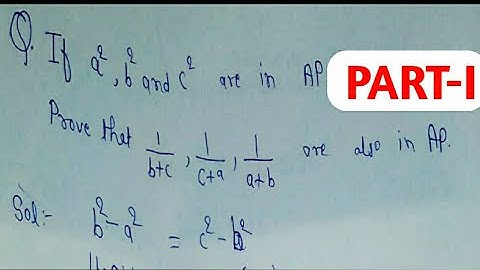 Q. If a², b² and c² are in AP
PART-I
Prove that 1/(b+c), 1/(c+a), 1/(a+b) are also in AP.
Sol:- b²-a² = c²-b²